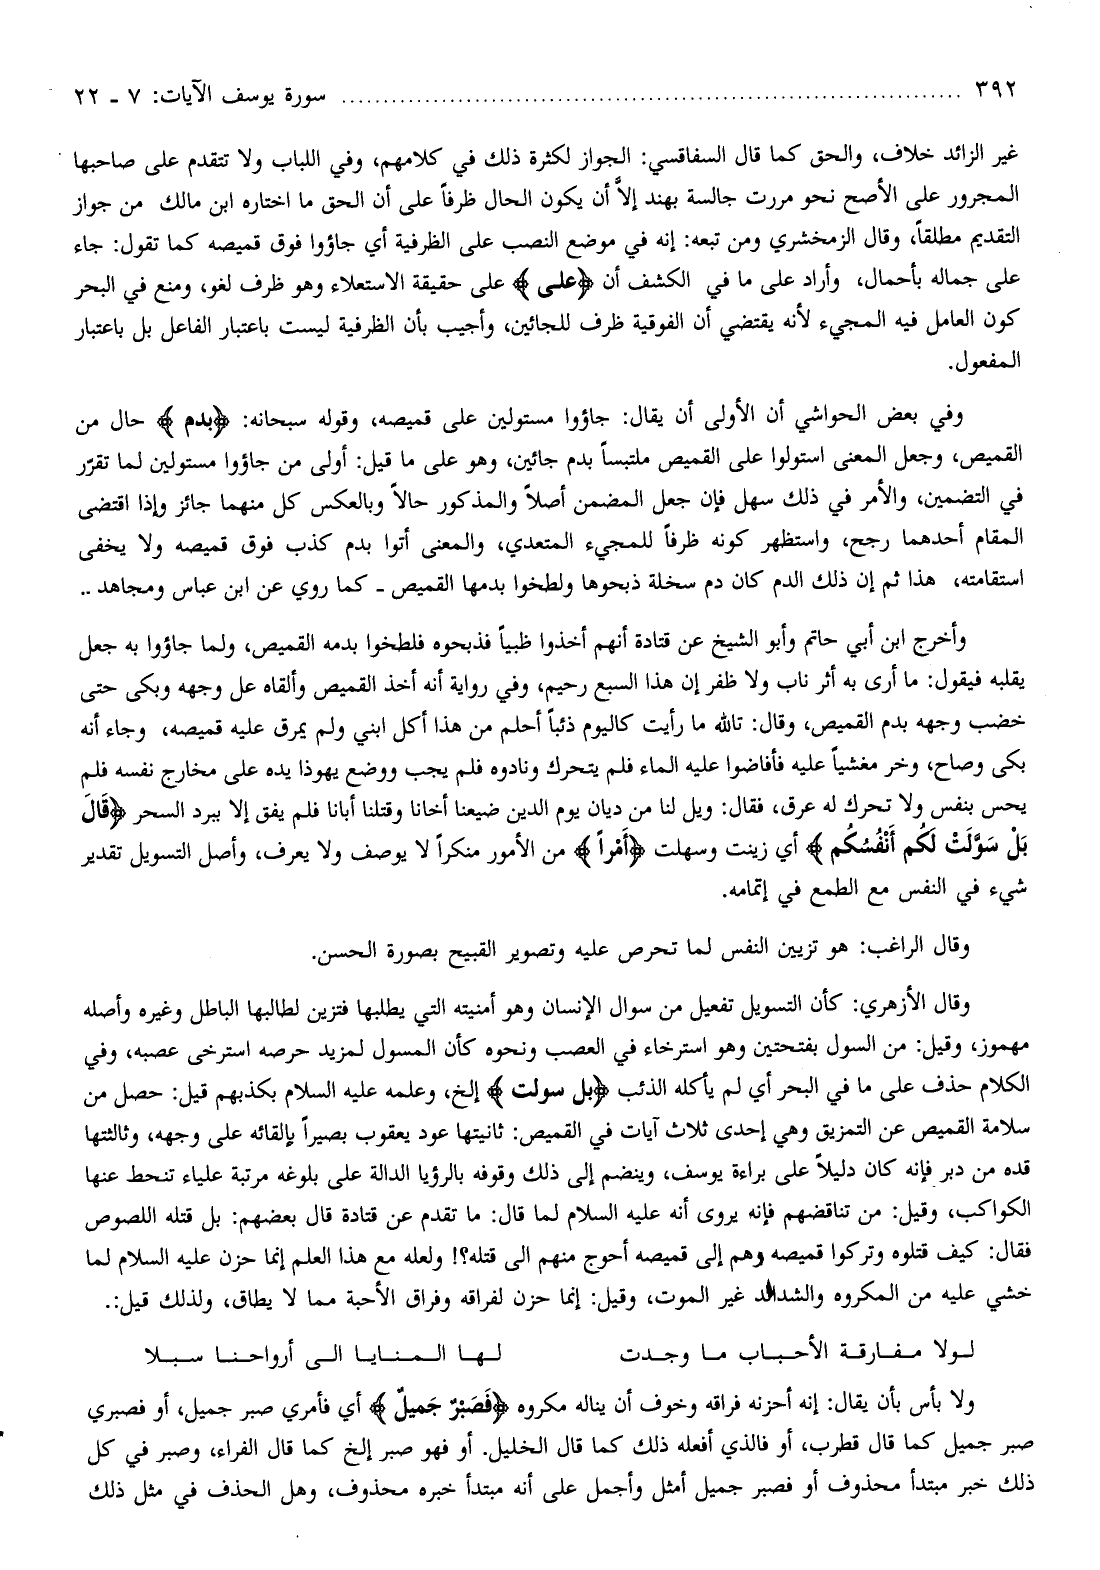 ٣٩٢ ........................................................................ سورة يوسف الآيات: ٧ - ٢٢
غير الزائد خلاف، والحق كما قال السفاقسي: الجواز لكثرة ذلك في كلامهم، وفي اللباب ولا تتقدم على صاحبها
المجرور على الأصح نحو مررت جالسة بهند إلاَّ أن يكون الحال ظرفاً على أن الحق ما اختاره ابن مالك من جواز
التقديم مطلقاً، وقال الزمخشري ومن تبعه: إنه في موضع النصب على الظرفية أي جاؤوا فوق قميصه كما تقول: جاء
على جماله بأحمال، وأراد على ما في الكشف أن ﴿على﴾ على حقيقة الاستعلاء وهو ظرف لغو، ومنع في البحر
كون العامل فيه المجيء لأنه يقتضي أن الفوقية ظرف للجائين، وأجيب بأن الظرفية ليست باعتبار الفاعل بل باعتبار
المفعول.
وفي بعض الحواشي أن الأولى أن يقال: جاؤوا مستولين على قميصه، وقوله سبحانه: ﴿بدم﴾ حال من
القميص، وجعل المعنى استولوا على القميص ملتبساً بدم جائين، وهو على ما قيل: أولى من جاؤوا مستولين لما تقرّر
في التضمين، والأمر في ذلك سهل فإن جعل المضمن أصلاً والمذكور حالاً وبالعكس كل منهما جائز وإذا اقتضى
المقام أحدهما رجح، واستظهر كونه ظرفاً للمجيء المتعدي، والمعنى أتوا بدم كذب فوق قميصه ولا يخفى
استقامته، هذا ثم إن ذلك الدم كان دم سخلة ذبحوها ولطخوا بدمها القميص ـ كما روي عن ابن عباس ومجاهد ..
وأخرج ابن أبي حاتم وأبو الشيخ عن قتادة أنهم أخذوا ظبياً فذبحوه فلطخوا بدمه القميص، ولما جاؤوا به جعل
يقلبه فيقول: ما أرى به أثر ناب ولا ظفر إن هذا السبع رحيم، وفي رواية أنه أخذ القميص وألقاه عل وجهه وبكى حتى
خضب وجهه بدم القميص، وقال: تالله ما رأيت كاليوم ذئباً أحلم من هذا أكل ابني ولم يمرق عليه قميصه، وجاء أنه
بكى وصاح، وخر مغشياً عليه فأفاضوا عليه الماء فلم يتحرك ونادوه فلم يجب ووضع يهوذا يده على مخارج نفسه فلم
يحس بنفس ولا تحرك له عرق، فقال: ويل لنا من ديان يوم الدين ضيعنا أخانا وقتلنا أبانا فلم يفق إلا ببرد السحر ﴿قَالَ
بَلْ سَوَّلَتْ لَكُم أَنْفُسُكُم﴾ أي زينت وسهلت ﴿أَمْراً﴾ من الأمور منكراً لا يوصف ولا يعرف، وأصل التسويل تقدير
شيء في النفس مع الطمع في إتمامه.
وقال الراغب: هو تزيين النفس لما تحرص عليه وتصوير القبيح بصورة الحسن.
وقال الأزهري: كأن التسويل تفعيل من سوال الإنسان وهو أمنيته التي يطلبها فتزين لطالبها الباطل وغيره وأصله
مهموز، وقيل: من السول بفتحتين وهو استرخاء في العصب ونحوه كأن المسول لمزيد حرصه استرخى عصبه، وفي
الكلام حذف على ما في البحر أي لم يأكله الذئب ﴿بل سولت﴾ إلخ، وعلمه عليه السلام بكذبهم قيل: حصل من
سلامة القميص عن التمزيق وهي إحدى ثلاث آيات في القميص: ثانيتها عود يعقوب بصيراً بإلقائه على وجهه، وثالثتها
قده من دبر فإنه كان دليلاً على براءة يوسف، وينضم إلى ذلك وقوفه بالرؤيا الدالة على بلوغه مرتبة علياء تنحط عنها
الكواكب، وقيل: من تناقضهم فإنه يروى أنه عليه السلام لما قال: ما تقدم عن قتادة قال بعضهم: بل قتله اللصوص
فقال: كيف قتلوه وتركوا قميصه وهم إلى قميصه أحوج منهم الى قتله؟! ولعله مع هذا العلم إنما حزن عليه السلام لما
خشي عليه من المكروه والشدائد غير الموت، وقيل: إنما حزن لفراقه وفراق الأحبة مما لا يطاق، ولذلك قيل:.
لولا مفارقة الأحباب ما وجدت لها المنايا الى أرواحنا سبلا
ولا بأس بأن يقال: إنه أحزنه فراقه وخوف أن يناله مكروه ﴿فَصَبْرٌ جَميلٌ﴾ أي فأمري صبر جميل، أو فصبري
صبر جميل كما قال قطرب، أو فالذي أفعله ذلك كما قال الخليل. أو فهو صبر إلخ كما قال الفراء، وصبر في كل
ذلك خبر مبتدأ محذوف أو فصبر جميل أمثل وأجمل على أنه مبتدأ خبره محذوف، وهل الحذف في مثل ذلك